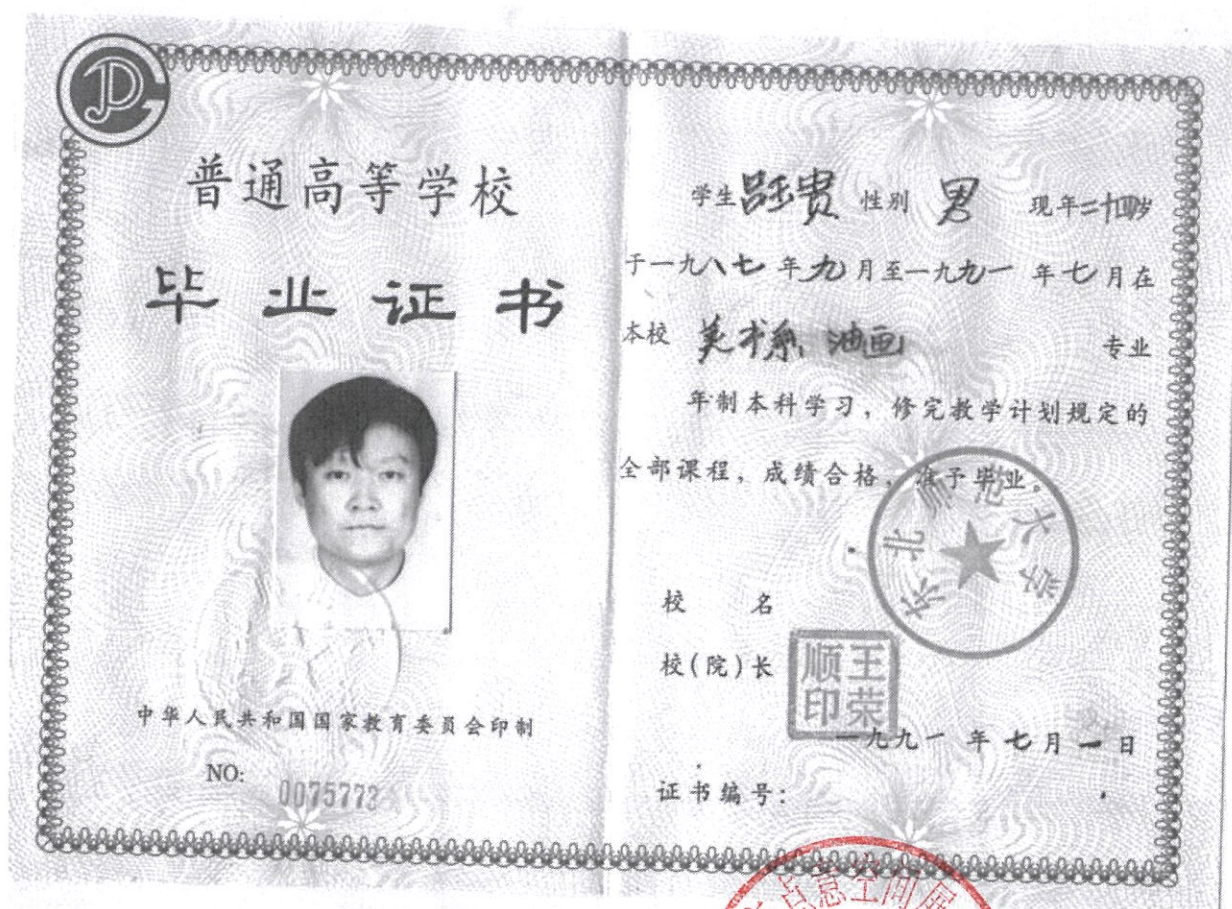 普通高等学校
毕业证书
中华人民共和国国家教育委员会印制
NO: 0075773
学生 吕玉贵 性别 男 现年二十四岁
于一九八七年九月至一九九一年七月在
本校 美术系 油画 专业
年制本科学习，修完教学计划规定的
全部课程，成绩合格，准予毕业。
东北师范大学
校 名
校(院)长
王荣顺印
一九九一年七月一日
证书编号：
点意空间展